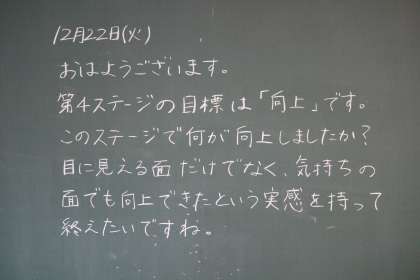 12月22日(火)
おはようございます。
第4ステージの目標は「向上」です。
このステージで何が向上しましたか?
目に見える面だけでなく、気持ちの
面でも向上できたという実感を持って
終えたいですね。